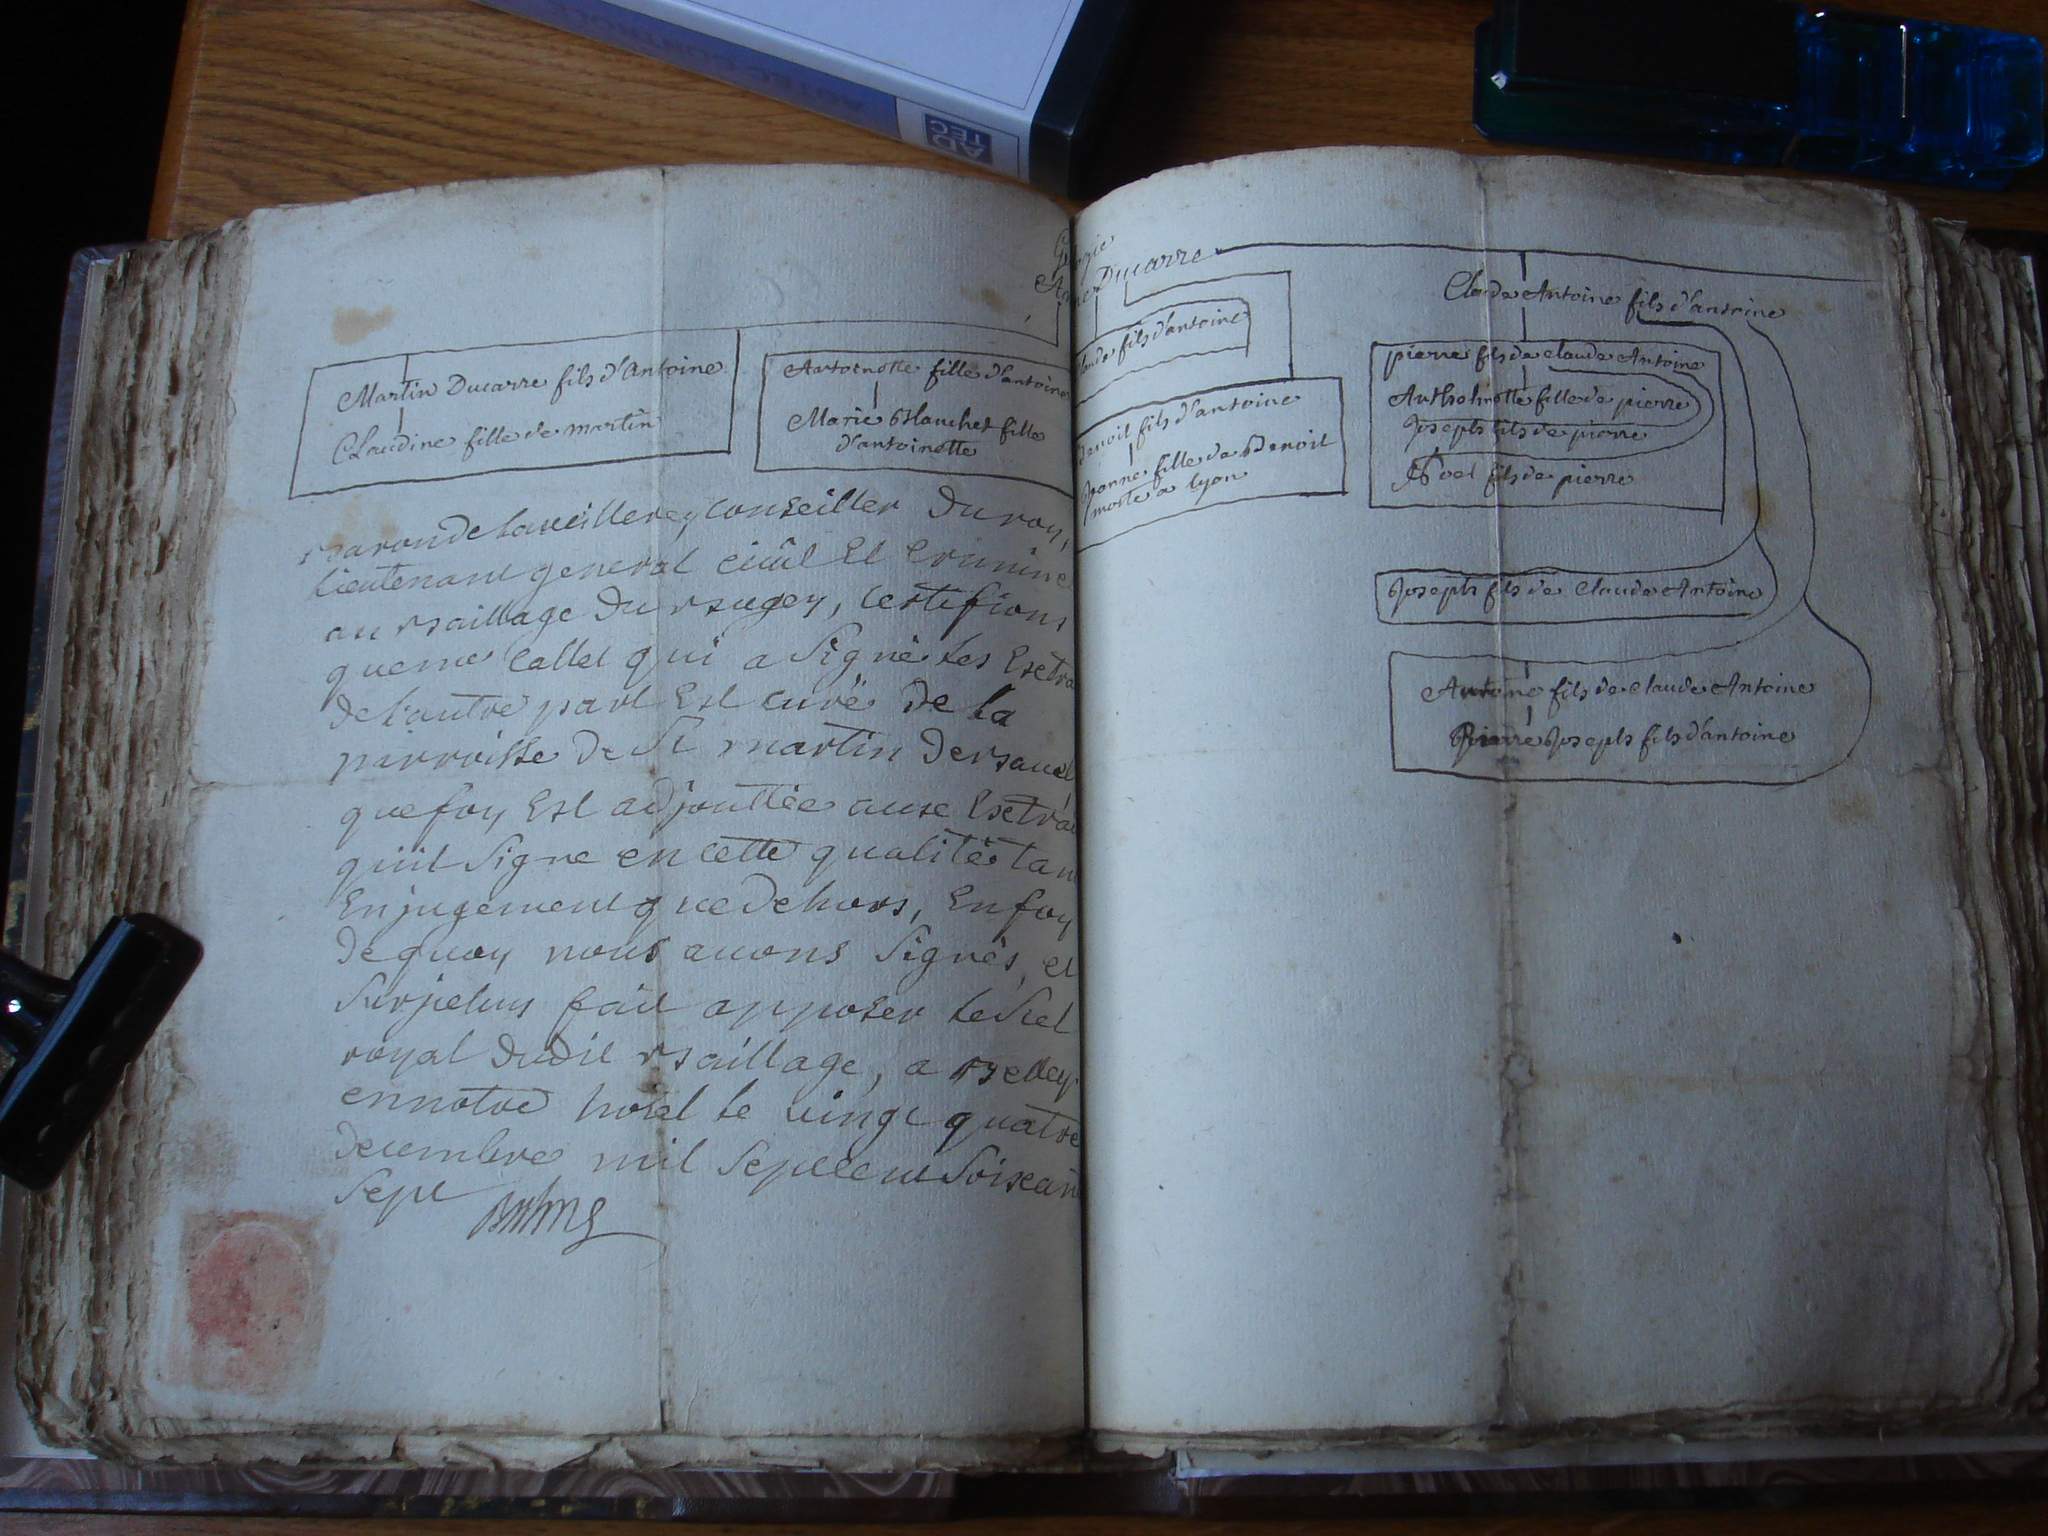 AD
TEC
Ducarre
Martin Ducarre fils d'Antoine
Claudine fille de martin
Antoinette fille d'antoine
Marie Blanchet fille
d'antoinette
fils d'antoine
Benoit fils d'antoine
Jeanne fille de Benoit
morte a lyon
Claude Antoine fils d'antoine
pierre fils de claude Antoine
fille de pierre
Joseph fils de pierre
Noel fils de pierre
Joseph fils de Claude Antoine
Antoine fils de Claude Antoine
Pierre Joseph fils d'antoine
conseiller Du roy,
Lieutenant general civil Et Crimine
au Baillage Du Bugey, Certifions
que me Callet qui a Signé Les Extra
De L'autre part Est curé De La
parroisse De St martin De
que foy Est adjouttée aux Extrai
qu'il Signe en cette qualité tan
En jugement que De hors, En foy
De quoy nous avons Signés, et
fait apposer Le Scel
royal Dudit Baillage, a Belley
en notre hotel Le vingt quatre
Decembre mil Sept cent Soixan
Sept